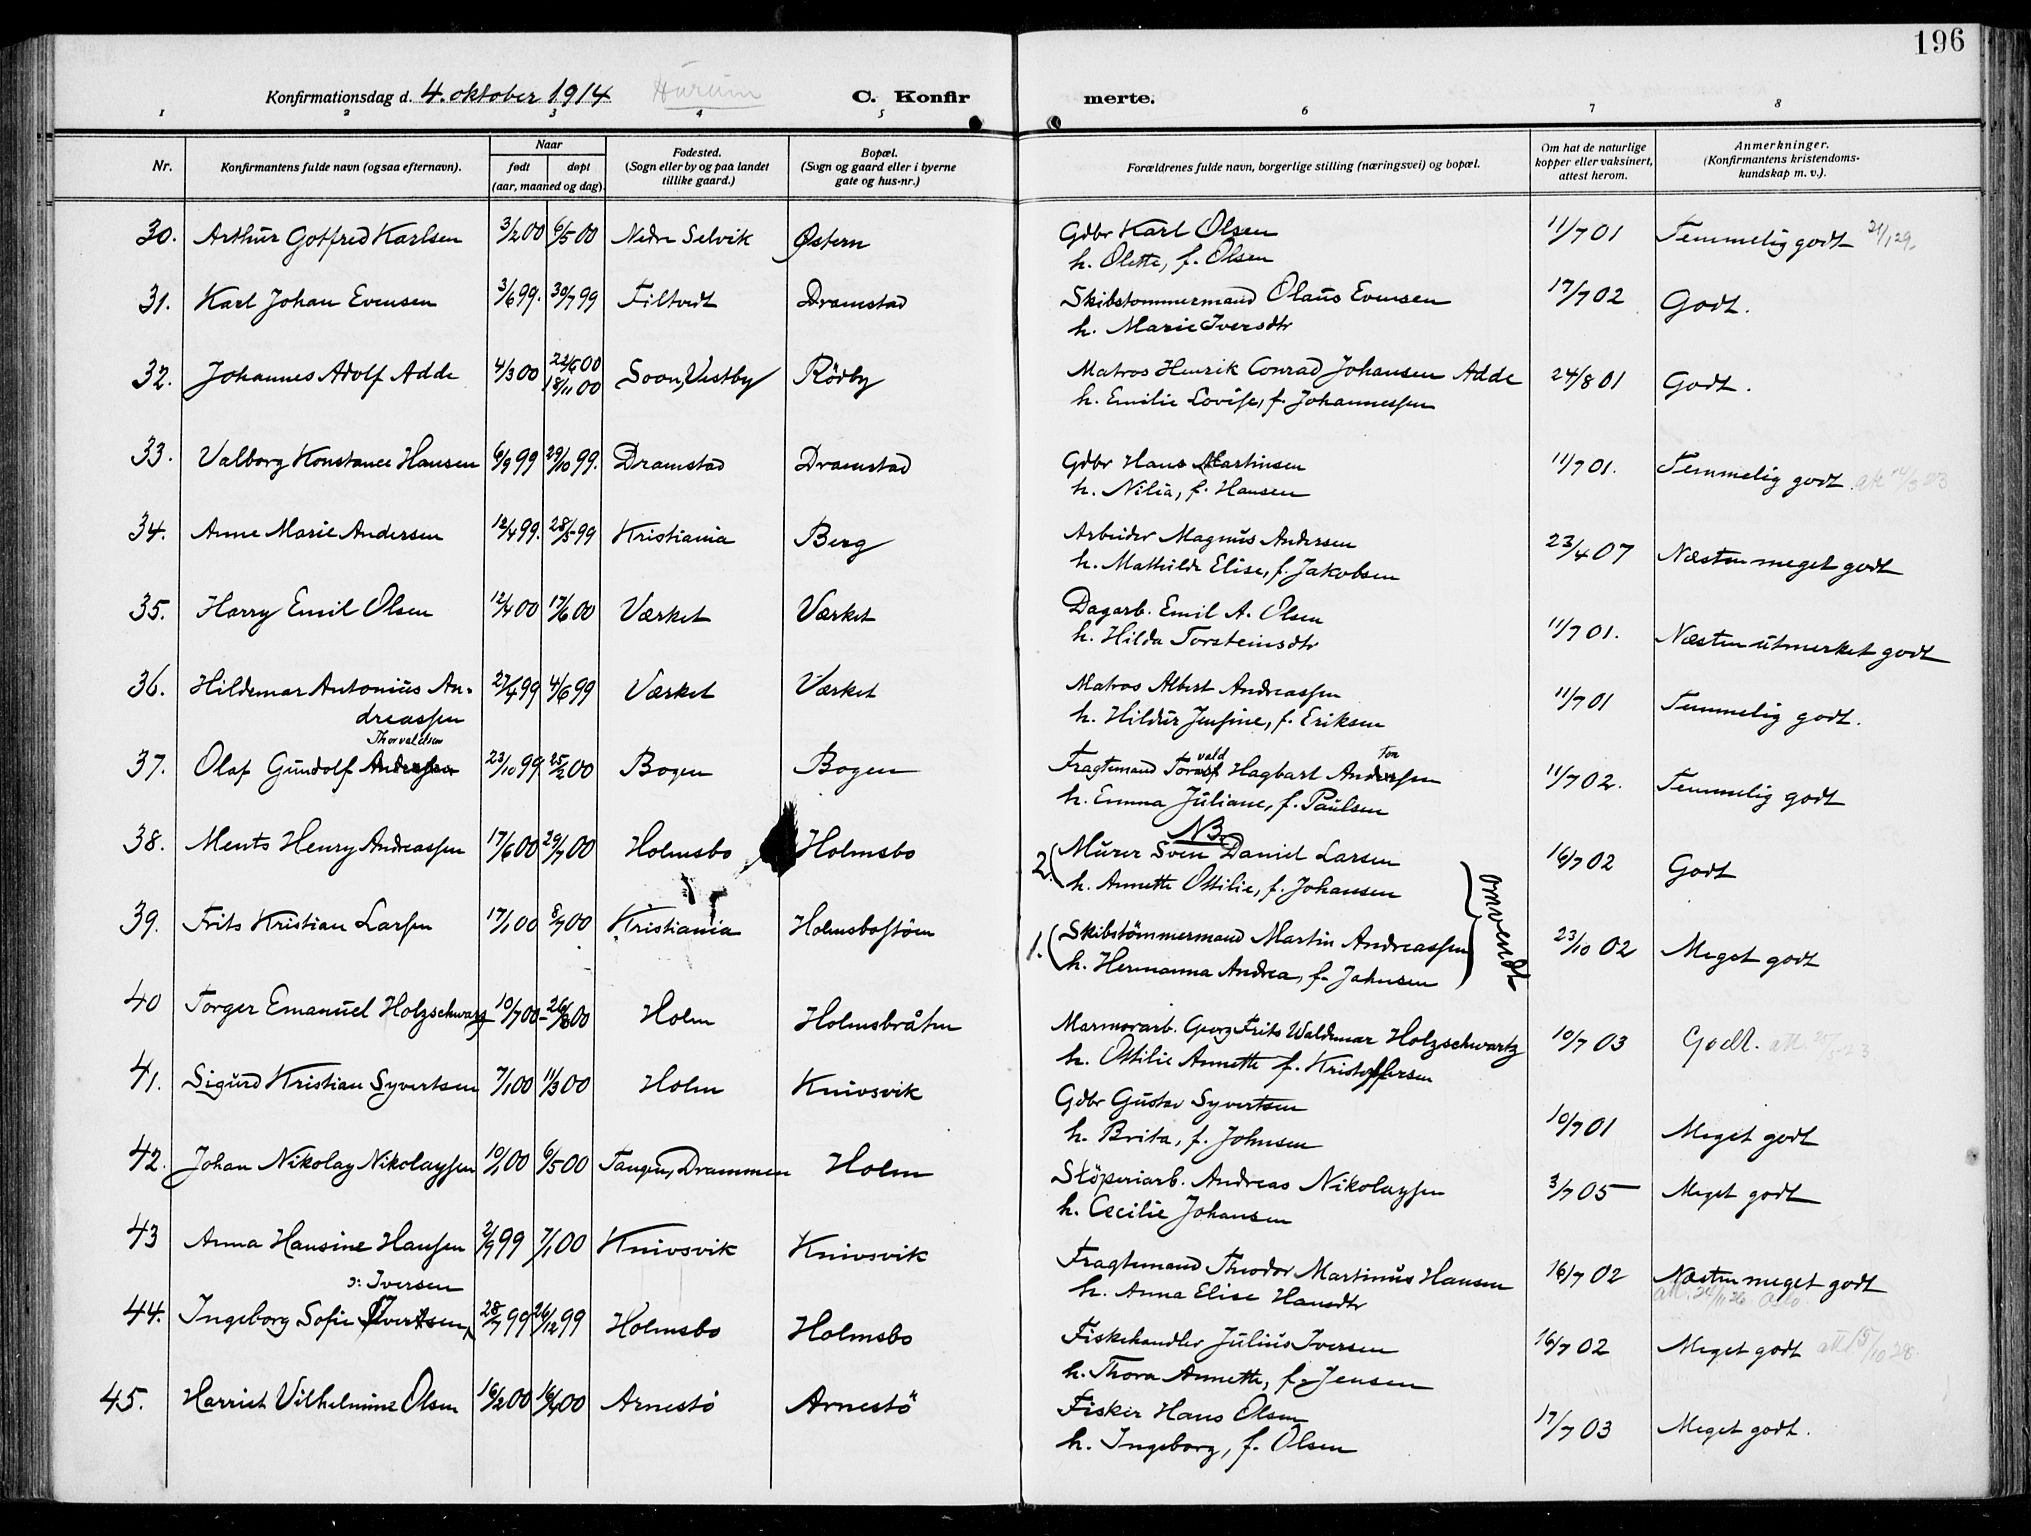 196
Konfirmationsdag d. 4. oktober 1914 Hurum C. Konfirmerte.
1 2 3 4 5 6 7 8
Nr. Konfirmantens fulde navn (ogsaa efternavn). Naar født døpt (aar, maaned og dag). Fødested. (Sogn eller by og paa landet tillike gaard.) Bopæl. (Sogn og gaard eller i byerne gate og hus-nr.) Forældrenes fulde navn, borgerlige stilling (næringsvei) og bopæl. Om hat de naturlige kopper eller vaksinert, attest herom. Anmerkninger. (Konfirmantens kristendomskundskap m. v.).
30. Arthur Gotfred Karlsen 3/2 00 6/5 00 Nedre Selvik Østern Gdbr Karl Olsen 11/7 01 Temmelig godt
h. Olette, f. Olsen
31. Karl Johan Evensen 3/6 99. 30/7 99 Filtvedt Dramstad Skibstømmermand Olaus Evensen 17/7 02 Godt.
h. Marie Iversdtr
32. Johannes Adolf Adde 4/3 00 22/6 00 18/11 00 Soon, Vestby Rödby Matros Henrik Conrad Johansen Adde 24/8 01 Godt.
h. Emilie Lovise, f. Johannessen
33. Valborg Konstance Hansen 6/9 99 29/10 99. Dramstad Dramstad Gdbr Hans Martinsen 11/7 01. Temmelig godt
h. Nilia, f. Hansen
34. Anne Marie Andersen 12/4 99. 28/5 99 Kristiania Berg Arbeider Magnus Andersen 23/4 07 Næsten meget godt
h. Mathilde Elise, f. Jakobsen
35. Harry Emil Olsen 12/4 00 17/6 00 Værket Værket Dagarb. Emil A. Olsen 11/7 01. Næsten utmerket godt
h. Hilda Torsteinsdtr
36. Hildemar Antonius Andreassen 27/4 99 4/6 99 Værket Værket Matros Albert Andreassen 11/7 01 Temmelig godt.
h. Hildur Jensine, f. Eriksen
Thorvaldsen
37. Olaf Gundolf 23/10 99 25/2 00 Bogen Bogen Fragtemand Torvald Hagbart 11/7 02. Temmelig godt
h. Emma Juliane, f. Paulsen
NB.
38. Ments Henry Andreassen 17/6 00 29/7 00 Holmsbo Holmsbo 2. (Murer Sven Daniel Larsen 16/7 02 Godt
h. Annette Ottilie, f. Johansen
omvendt
39. Frits Kristian Larsen 17/1 00 8/7 00 Kristiania Holmsbostöen 1. (Skibstömmermand Martin Andreassen 23/10 02 Meget godt
h. Hermanna Andrea, f. Jahnsen
40 Torger Emanuel Holzschwarz 10/7 00 - 26/8 00 Holm Holmsbråten Marmorarb. Georg Frits Waldemar Holzschwartz 10/7 03 Godt.
h. Ottilie Annette f. Kristoffersen
41. Sigurd Kristian Syvertsen 7/1 00 11/3 00 Holm Knivsvik Gdbr Gustav Syvertsen 10/7 01 Meget godt
h. Brita, f. Johnsen
42. Johan Nikolay Nikolaysen 10/1 00 6/5 00 Tangen, Drammen Holm Stöperiarb. Andreas Nikolaysen 3/7 05 Meget godt
h. Cecilie Johansen
43 Anna Hansine Hansen 2/9 99 7/1 00 Knivsvik Knivsvik Fragtemand Theodor Martinus Hansen 16/7 02 Næsten meget godt
h. Anna Elise Hansdtr
ɔ: Iversen
44. Ingeborg Sofie Syvertsen, 28/7 99 26/12 99 Holmsbo Holmsbo Fiskehandler Julius Iversen 16/7 02 Meget godt att 15/10 28.
h. Thora Annette, f. Jensen
45. Harriet Vilhelmine Olsen 16/2 00 16/4 00 Arnestö Arnestö Fisker Hans Olsen 17/7 03 Meget godt.
h. Ingeborg, f. Olsen